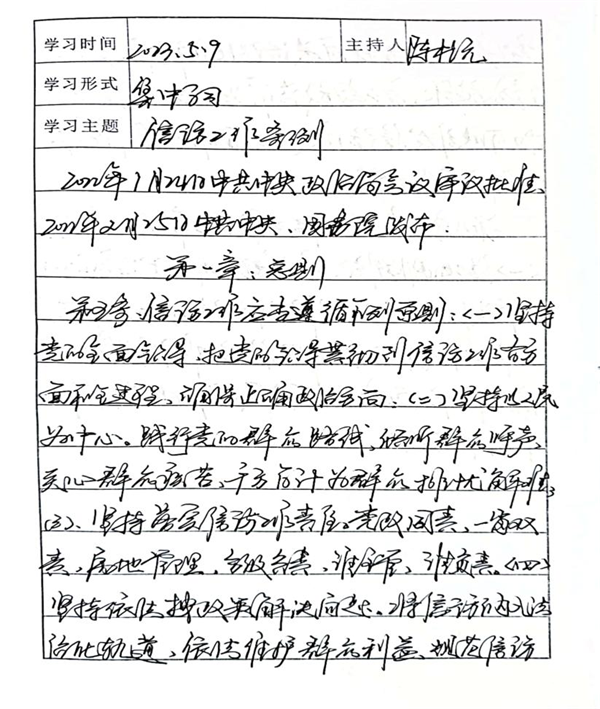 学习时间 2023.5.9 主持人 陈
学习形式 集中学习
学习主题 信访工作条例
2022年1月24日中共中央政治局会议审议批准,
2022年2月25日中共中央、国务院发布.
第一章:总则
第五条、信访工作应当遵循下列原则:(一)坚持
党的全面领导,把党的领导贯彻到信访工作各方
面和全过程,确保正确政治方向;(二)坚持以人民
为中心。践行党的群众路线,倾听群众呼声,
关心群众疾苦,千方百计为群众排忧解难;
(三)、坚持落实信访工作责任。党政同责,一岗双
责,属地管理,分级负责,谁主管,谁负责。(四)
坚持依法按政策解决问题。将信访纳入法
治化轨道,依法维护群众利益、规范信访